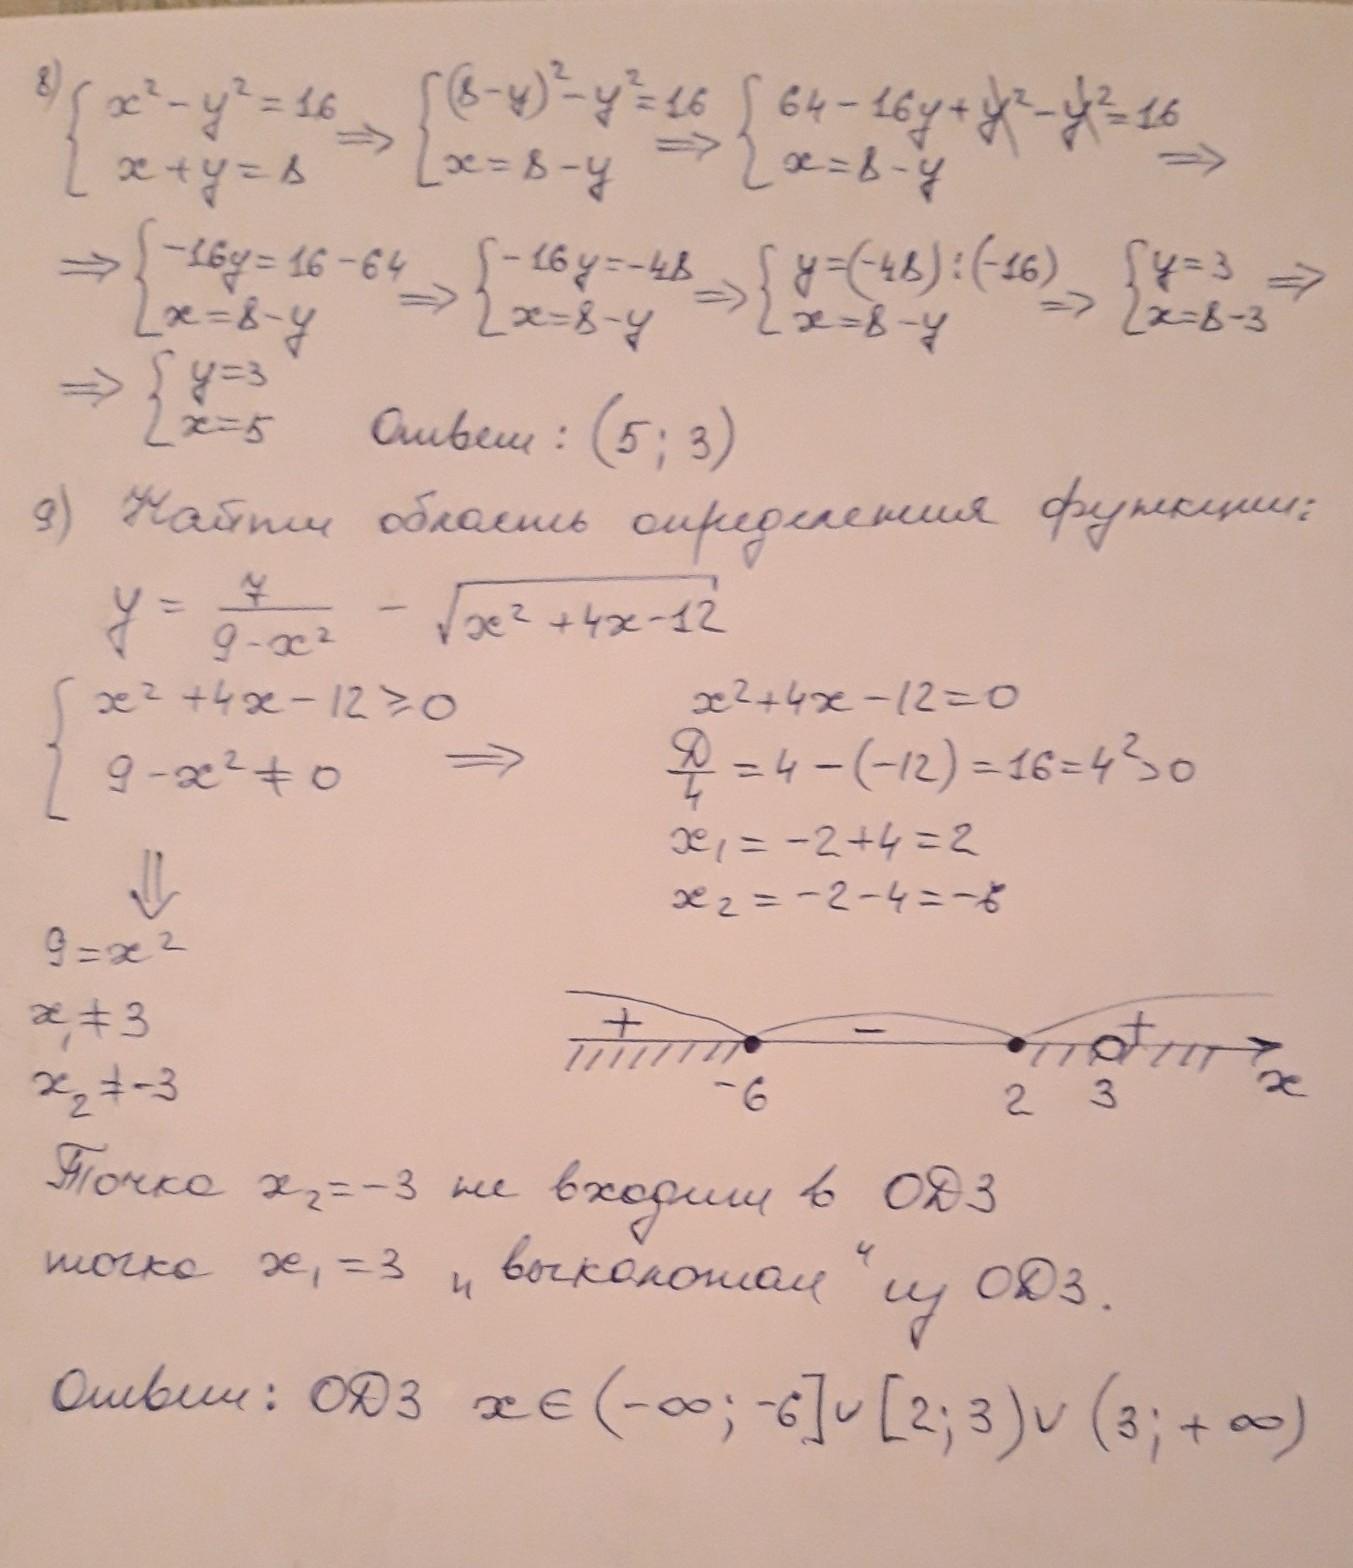 8) { x² - y² = 16 ; x + y = 8 ⇒ { (8-y)² - y² = 16 ; x = 8 - y ⇒ { 64 - 16y + y² - y² = 16 ; x = 8 - y ⇒
⇒ { -16y = 16 - 64 ; x = 8 - y ⇒ { -16y = -48 ; x = 8 - y ⇒ { y = (-48) : (-16) ; x = 8 - y ⇒ { y = 3 ; x = 8 - 3 ⇒
⇒ { y = 3 ; x = 5 Ответ : (5 ; 3)
9) Найти область определения функции:
y = 7/(9-x²) - √(x² + 4x - 12)
{ x² + 4x - 12 ≥ 0 ; 9 - x² ≠ 0 ⇒
x² + 4x - 12 = 0
Д/4 = 4 - (-12) = 16 = 4² > 0
x₁ = -2 + 4 = 2
x₂ = -2 - 4 = -6
⇓
9 = x²
x₁ ≠ 3
x₂ ≠ -3
+ - +
-6 2 3 x
Точка x₂ = -3 не входит в ОДЗ
точка x₁ = 3 „выколотая“ из ОДЗ.
Ответ: ОДЗ x ∈ (-∞; -6] ∪ [2; 3) ∪ (3; +∞)